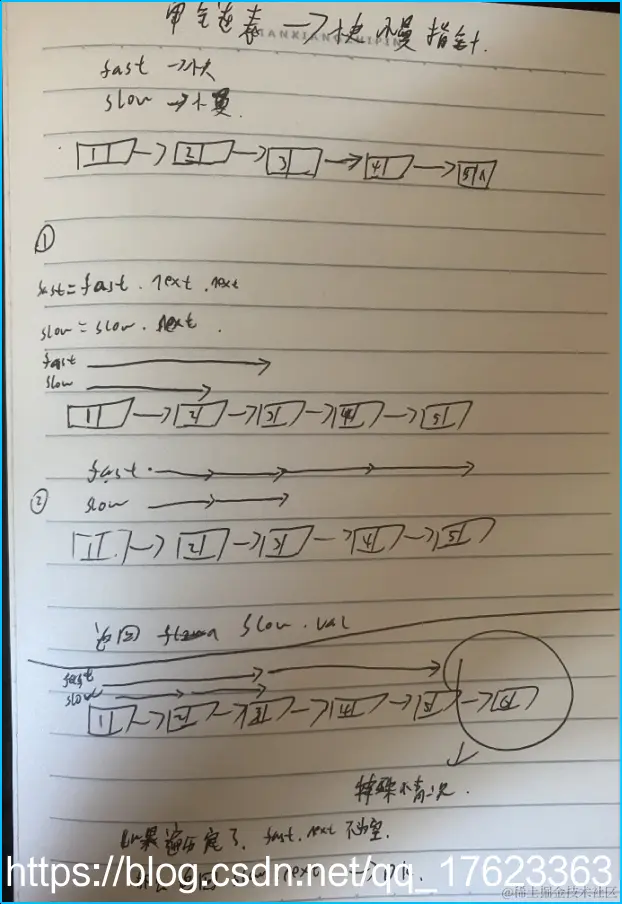 单向链表 → 快慢指针
fast → 快
slow → 慢
1 → 2 → 3 → 4 → 5 ∧
①
fast = fast . next . next
slow = slow . next .
fast
slow
1 → 2 → 3 → 4 → 5
fast
② slow
1 → 2 → 3 → 4 → 5
返回 slow . val
fast
slow
1 → 2 → 3 → 4 → 5 →
特殊情况.
如果遍历完了, fast . next 不为空.
返回 slow next
https://blog.csdn.net/qq_17623363
@稀土掘金技术社区